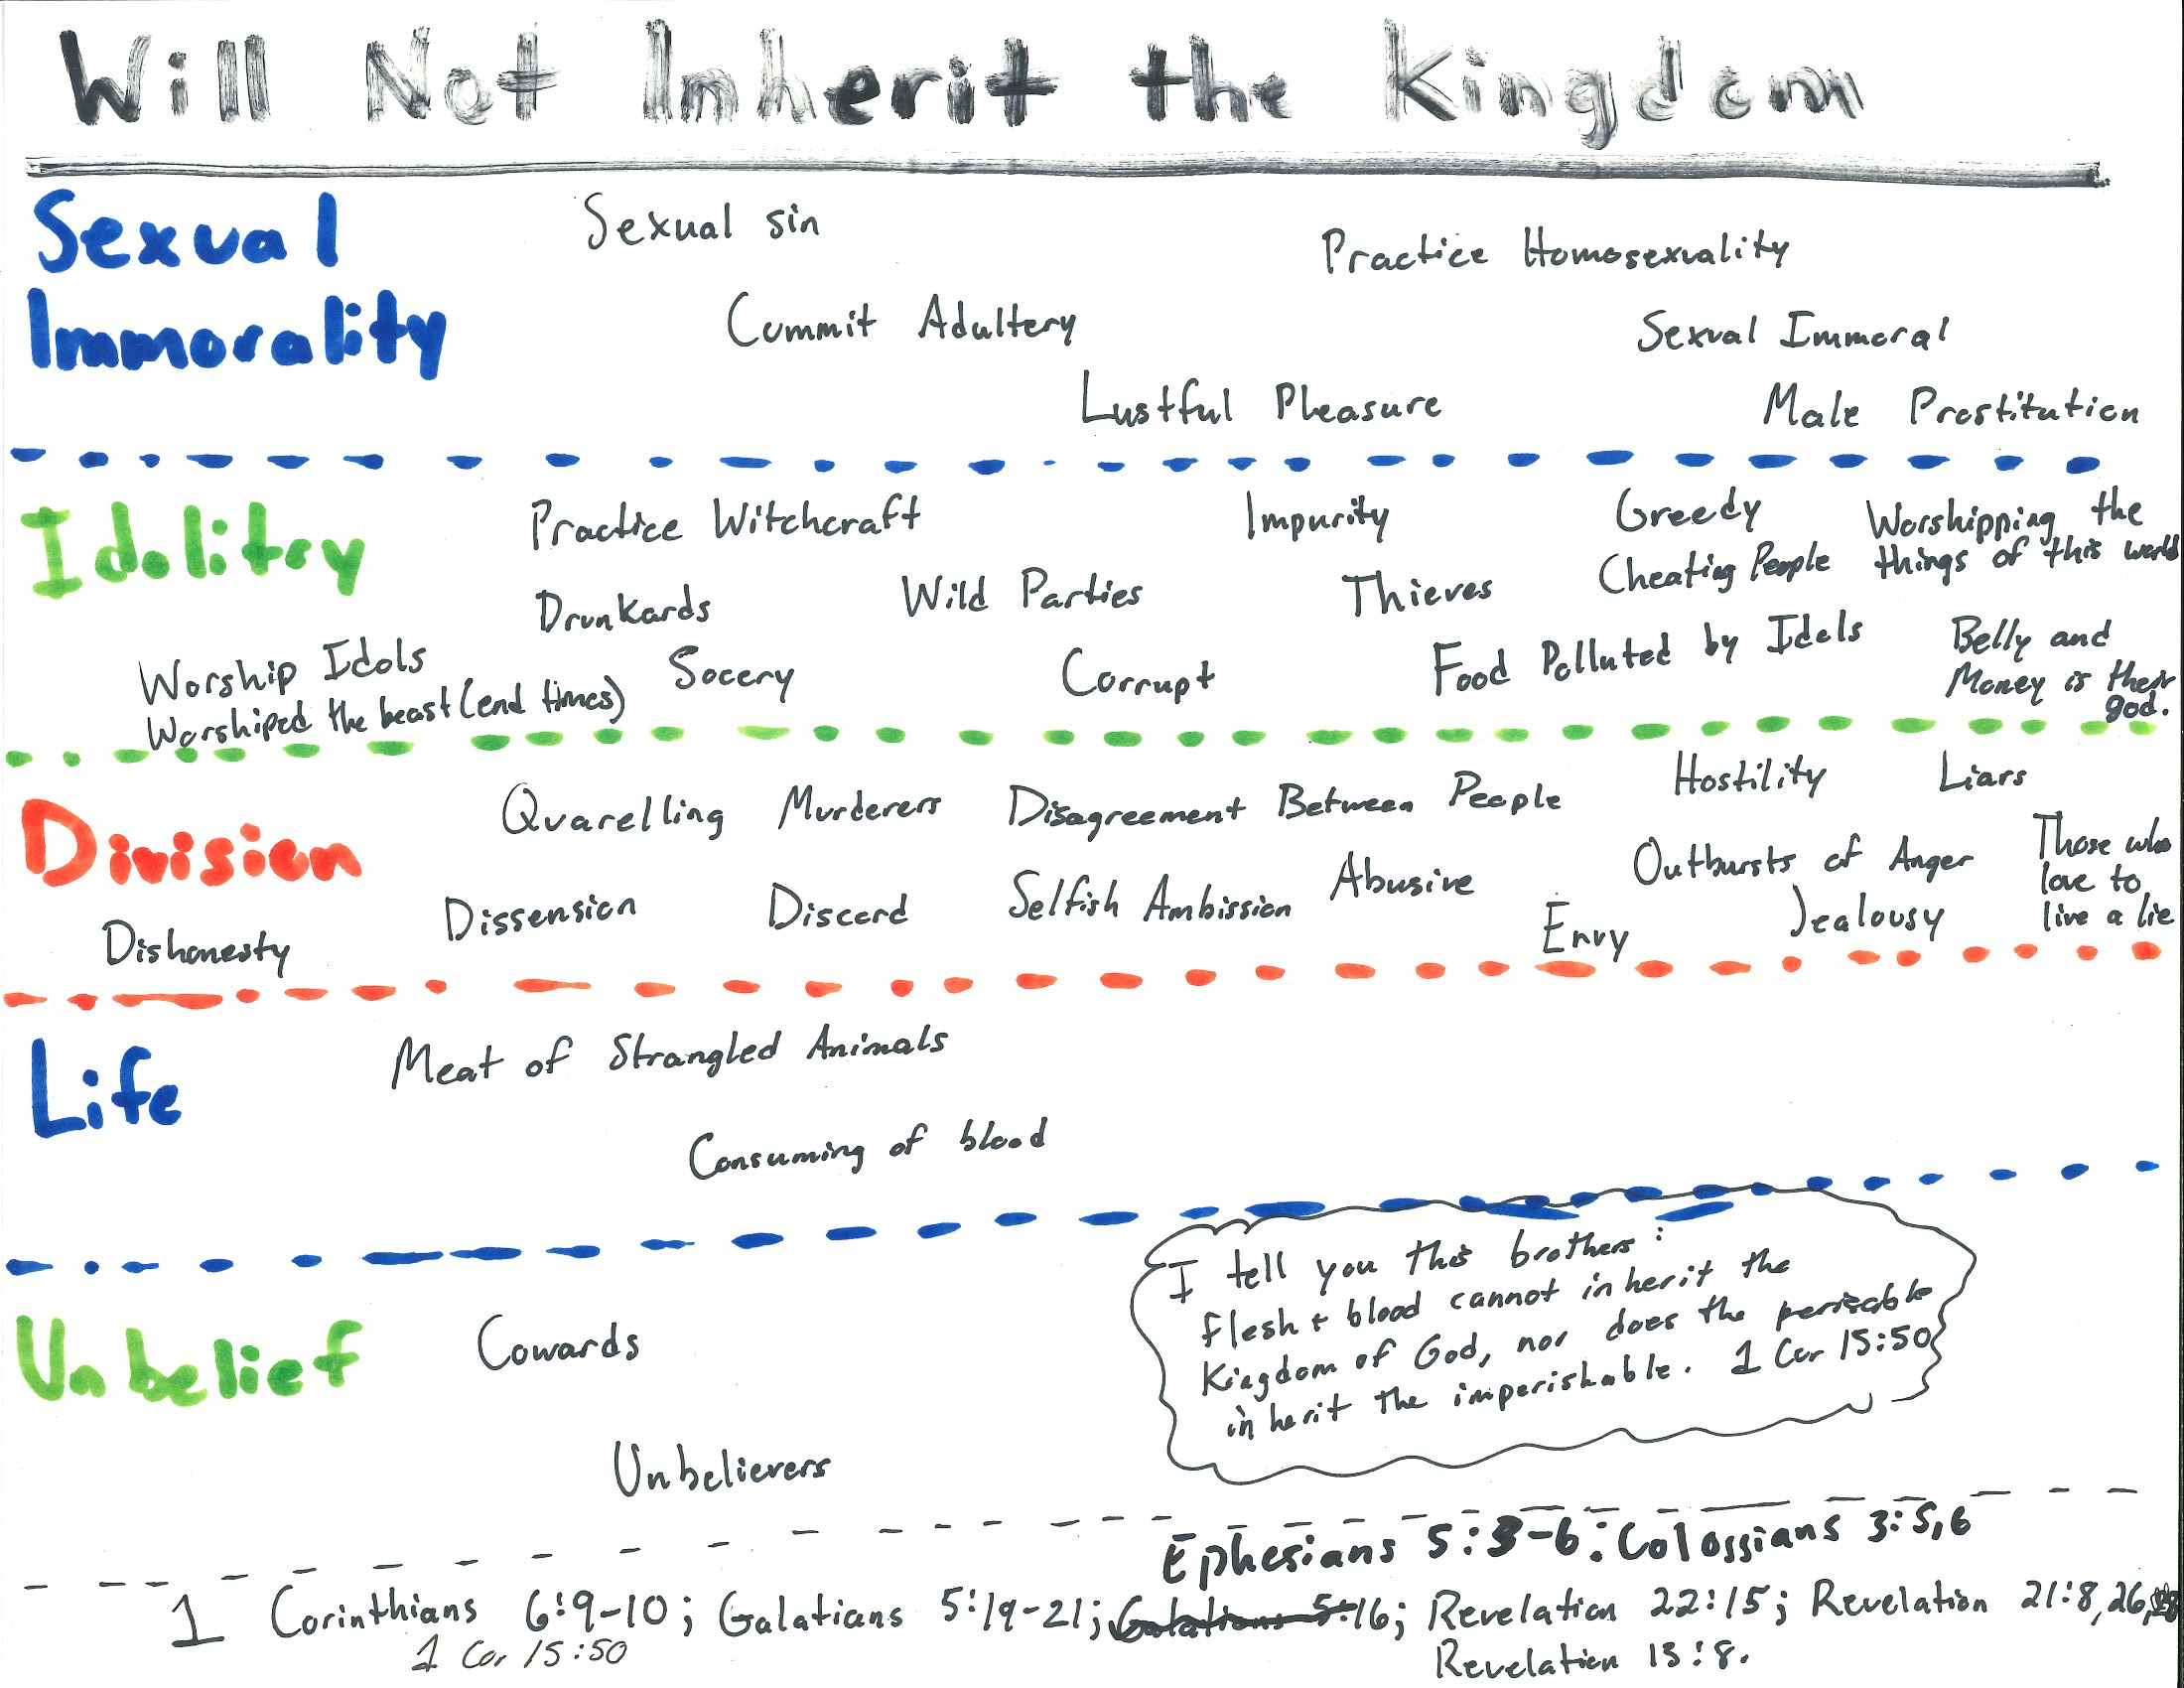 Will Not Inherit the Kingdom
Sexual
Immorality
Sexual sin
Practice Homosexuality
Commit Adultery
Sexual Immoral
Lustful Pleasure
Male Prostitution
Idolitry
Practice Witchcraft
Impurity
Greedy
Worshipping the
things of this world
Cheating People
Drunkards
Wild Parties
Thieves
Worship Idols
Worshiped the beast (end times)
Socery
Corrupt
Food Polluted by Idols
Belly and
Money is their
god.
Division
Quarelling
Murderers
Disagreement Between People
Hostility
Liars
Dishonesty
Dissension
Discord
Selfish Ambission
Abusive
Envy
Outbursts of Anger
Jealousy
Those who
love to
live a lie
Life
Meat of Strangled Animals
Consuming of blood
Unbelief
Cowards
Unbelievers
I tell you this brothers:
flesh + blood cannot inherit the
Kingdom of God, nor does the perisable
inherit the imperishable. 1 Cor 15:50
Ephesians 5:3-6: Colossians 3:5,6
1 Corinthians 6:9-10; Galatians 5:19-21; Galatians 5:16; Revelation 22:15; Revelation 21:8,26,
1 Cor 15:50
Revelation 13:8.